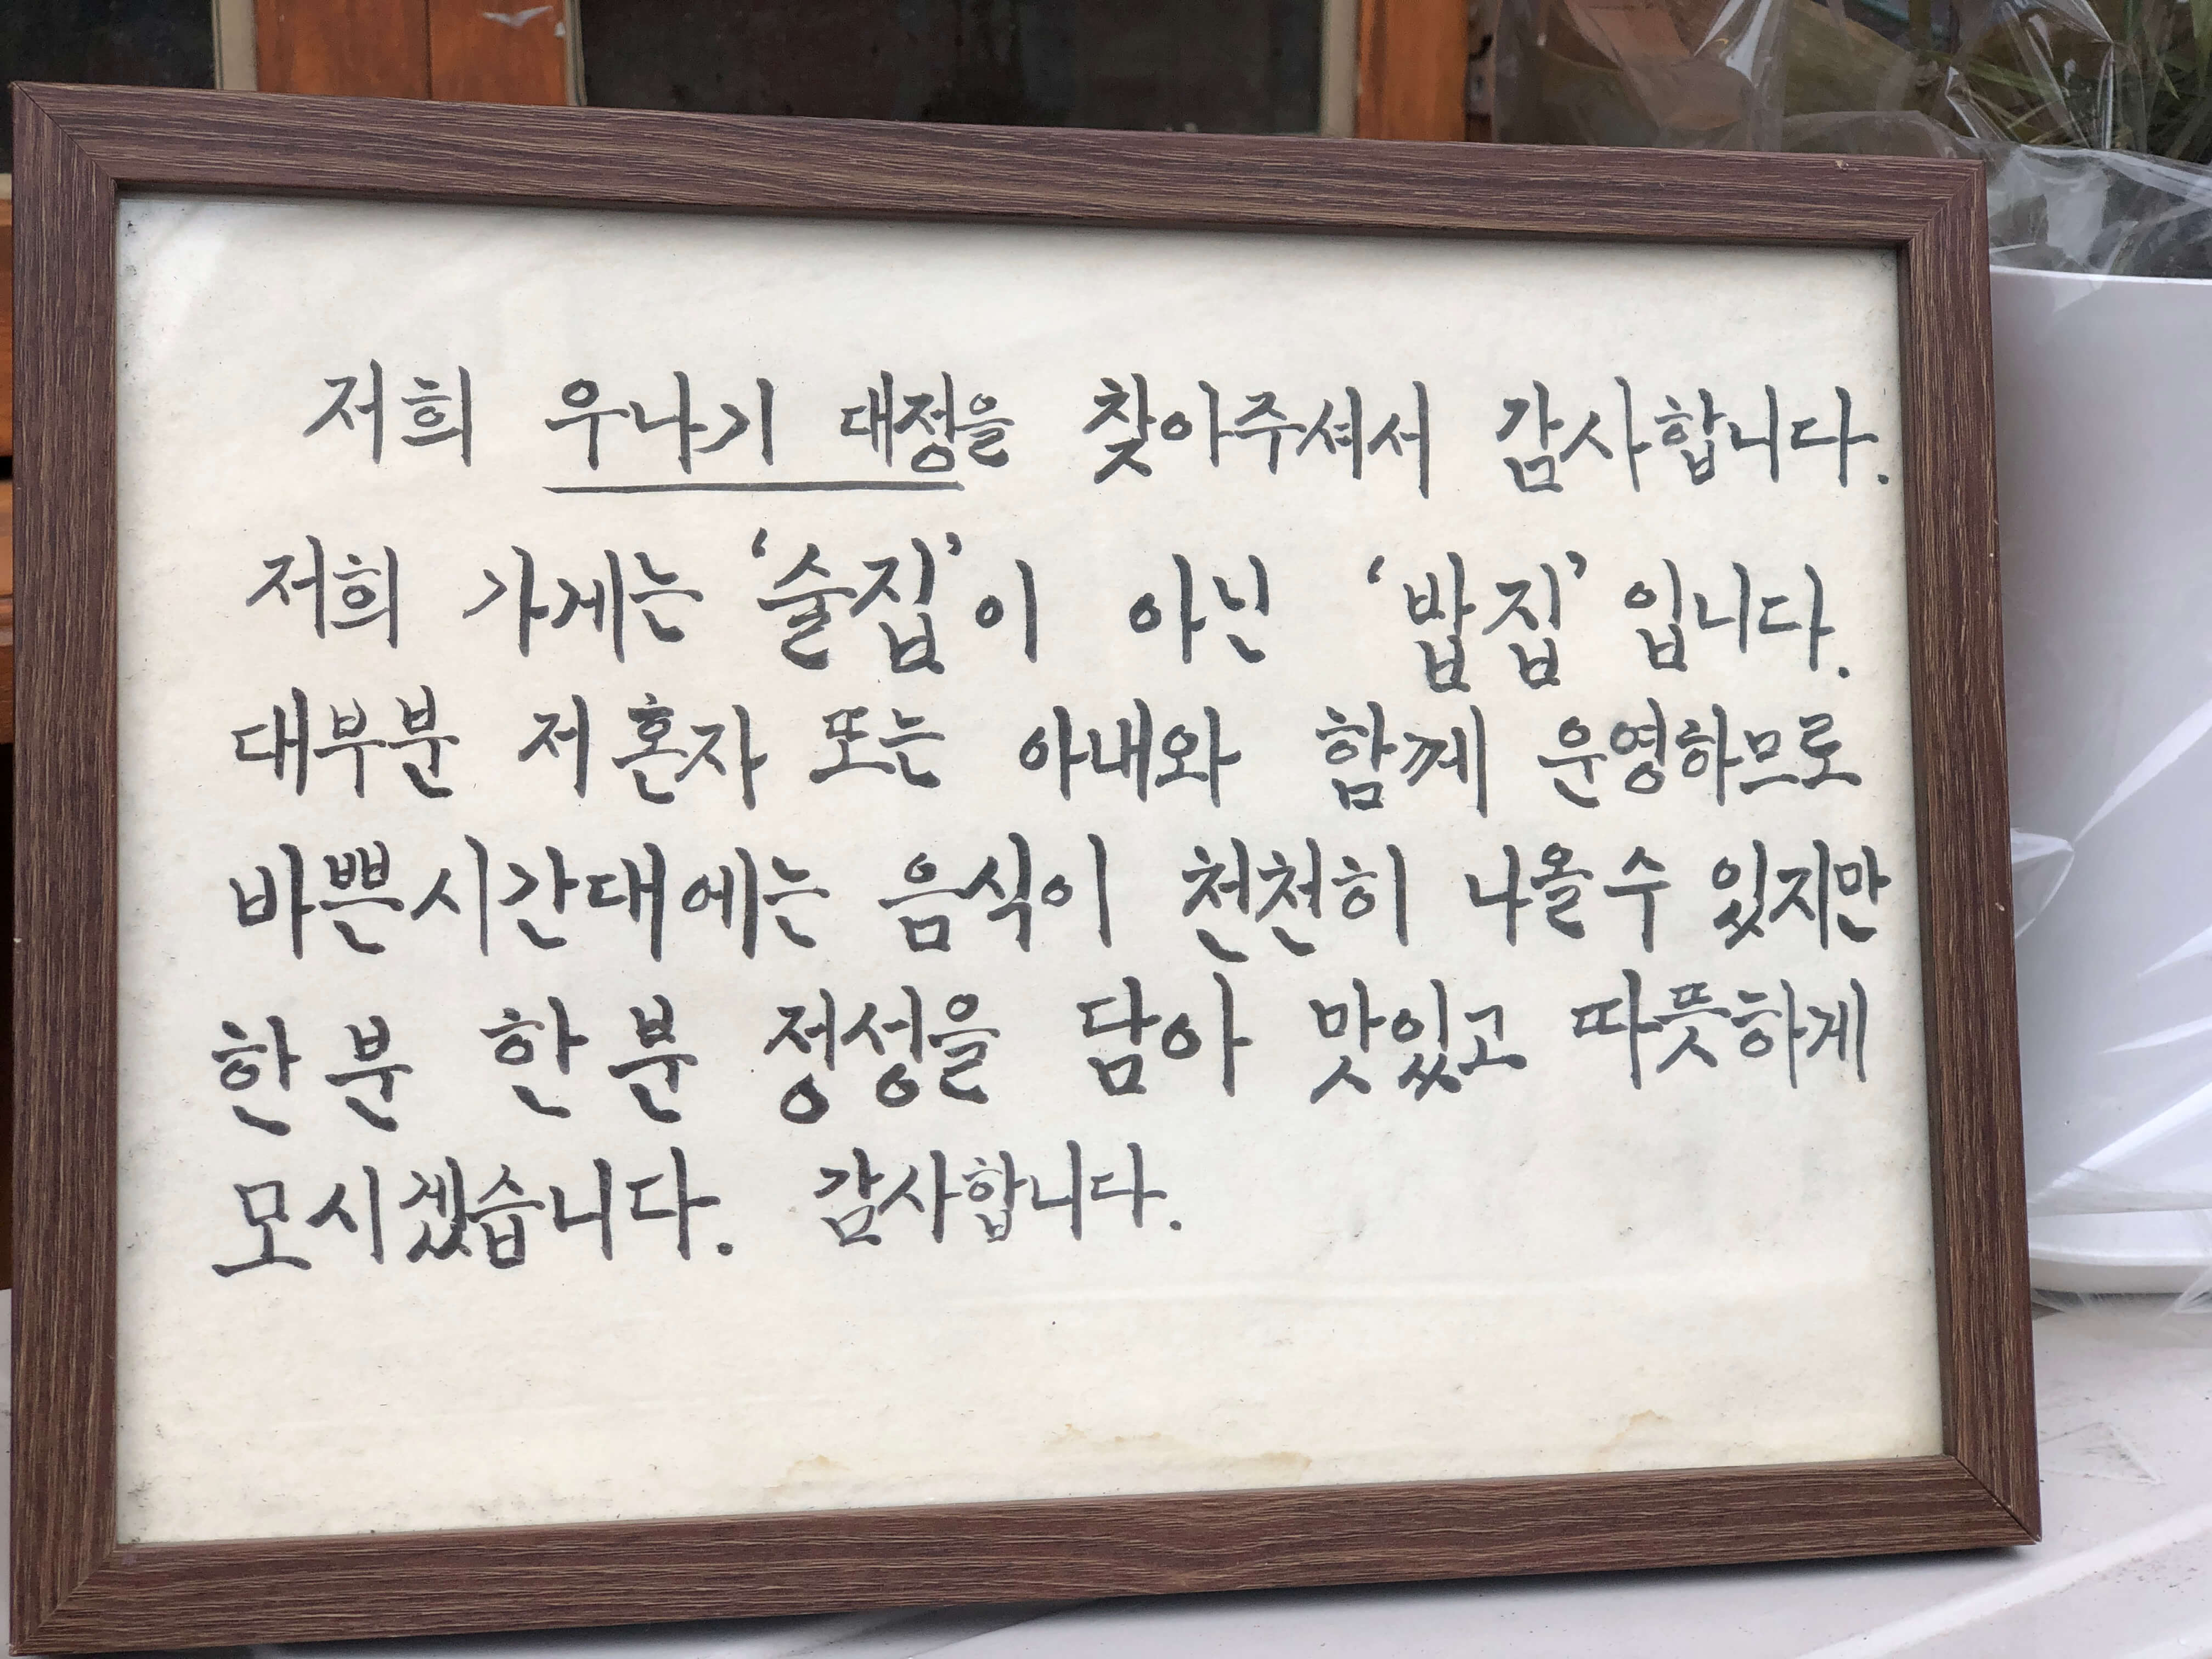 저희 우나기 대정을 찾아주셔서 감사합니다.
저희 가게는 '술집'이 아닌 '밥집' 입니다.
대부분 저 혼자 또는 아내와 함께 운영하므로
바쁜시간대에는 음식이 천천히 나올수 있지만
한 분 한 분 정성을 담아 맛있고 따뜻하게
모시겠습니다. 감사합니다.